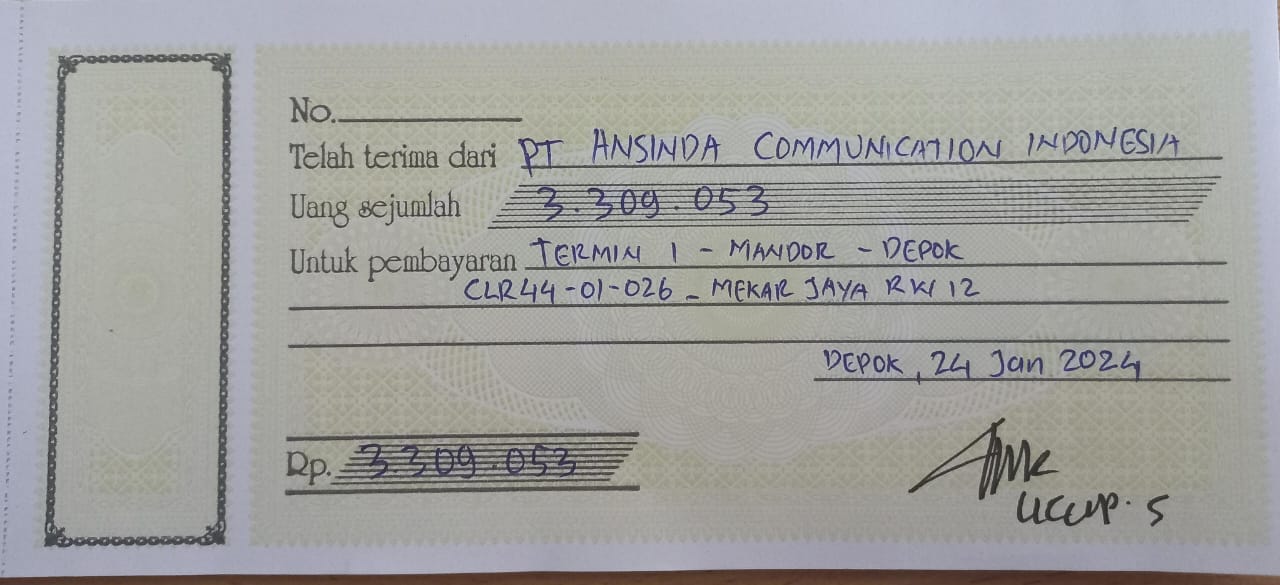 No.
Telah terima dari PT ANSINDA COMMUNICATION INDONESIA
Uang sejumlah 3.309.053
Untuk pembayaran TERMIN 1 - MANDOR - DEPOK
CLR44-01-026 - MEKAR JAYA RW 12
DEPOK, 24 Jan 2024
Rp. 3.309.053
Ucup. S